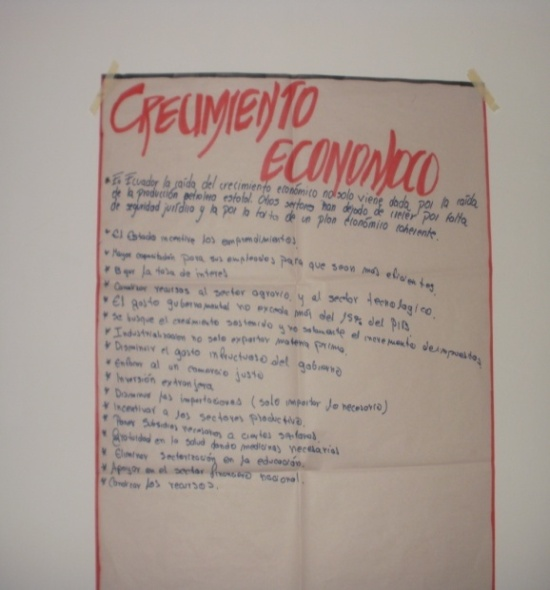 CRECIMIENTO
ECONOMICO
* En Ecuador la caída del crecimiento económico no solo viene dada por la caída
de la producción petrolera estatal. Otros sectores han dejado de crecer por falta
de seguridad jurídica y la por la falta de un plan económico coherente.
* El Estado incentive los emprendimientos.
* Mayor capacitación para sus empleados para que sean más eficientes.
* Bajar la tasa de interés
* Canalizar recursos al sector agrario, y al sector tecnologico.
* El gasto gubernamental no exceda más del 15% del PIB
* Se busque el crecimiento sostenido y no solamente el incremento de impuestos
* Industrializarnos no solo exportar materia prima.
* Disminuir el gasto infructuoso del gobierno
* al un comercio justo
* Inversión extranjera
* Disminuir las importaciones (solo importar lo necesario)
* Incentivar a los sectores productivo.
* Poner Subsidios necesarios a ciertos
* Gratuidad en la salud dando medicinas necesarias
* Eliminar sectorización en la educación.
* Apoyar en el sector financiero nacional.
* Canalizar los recursos.